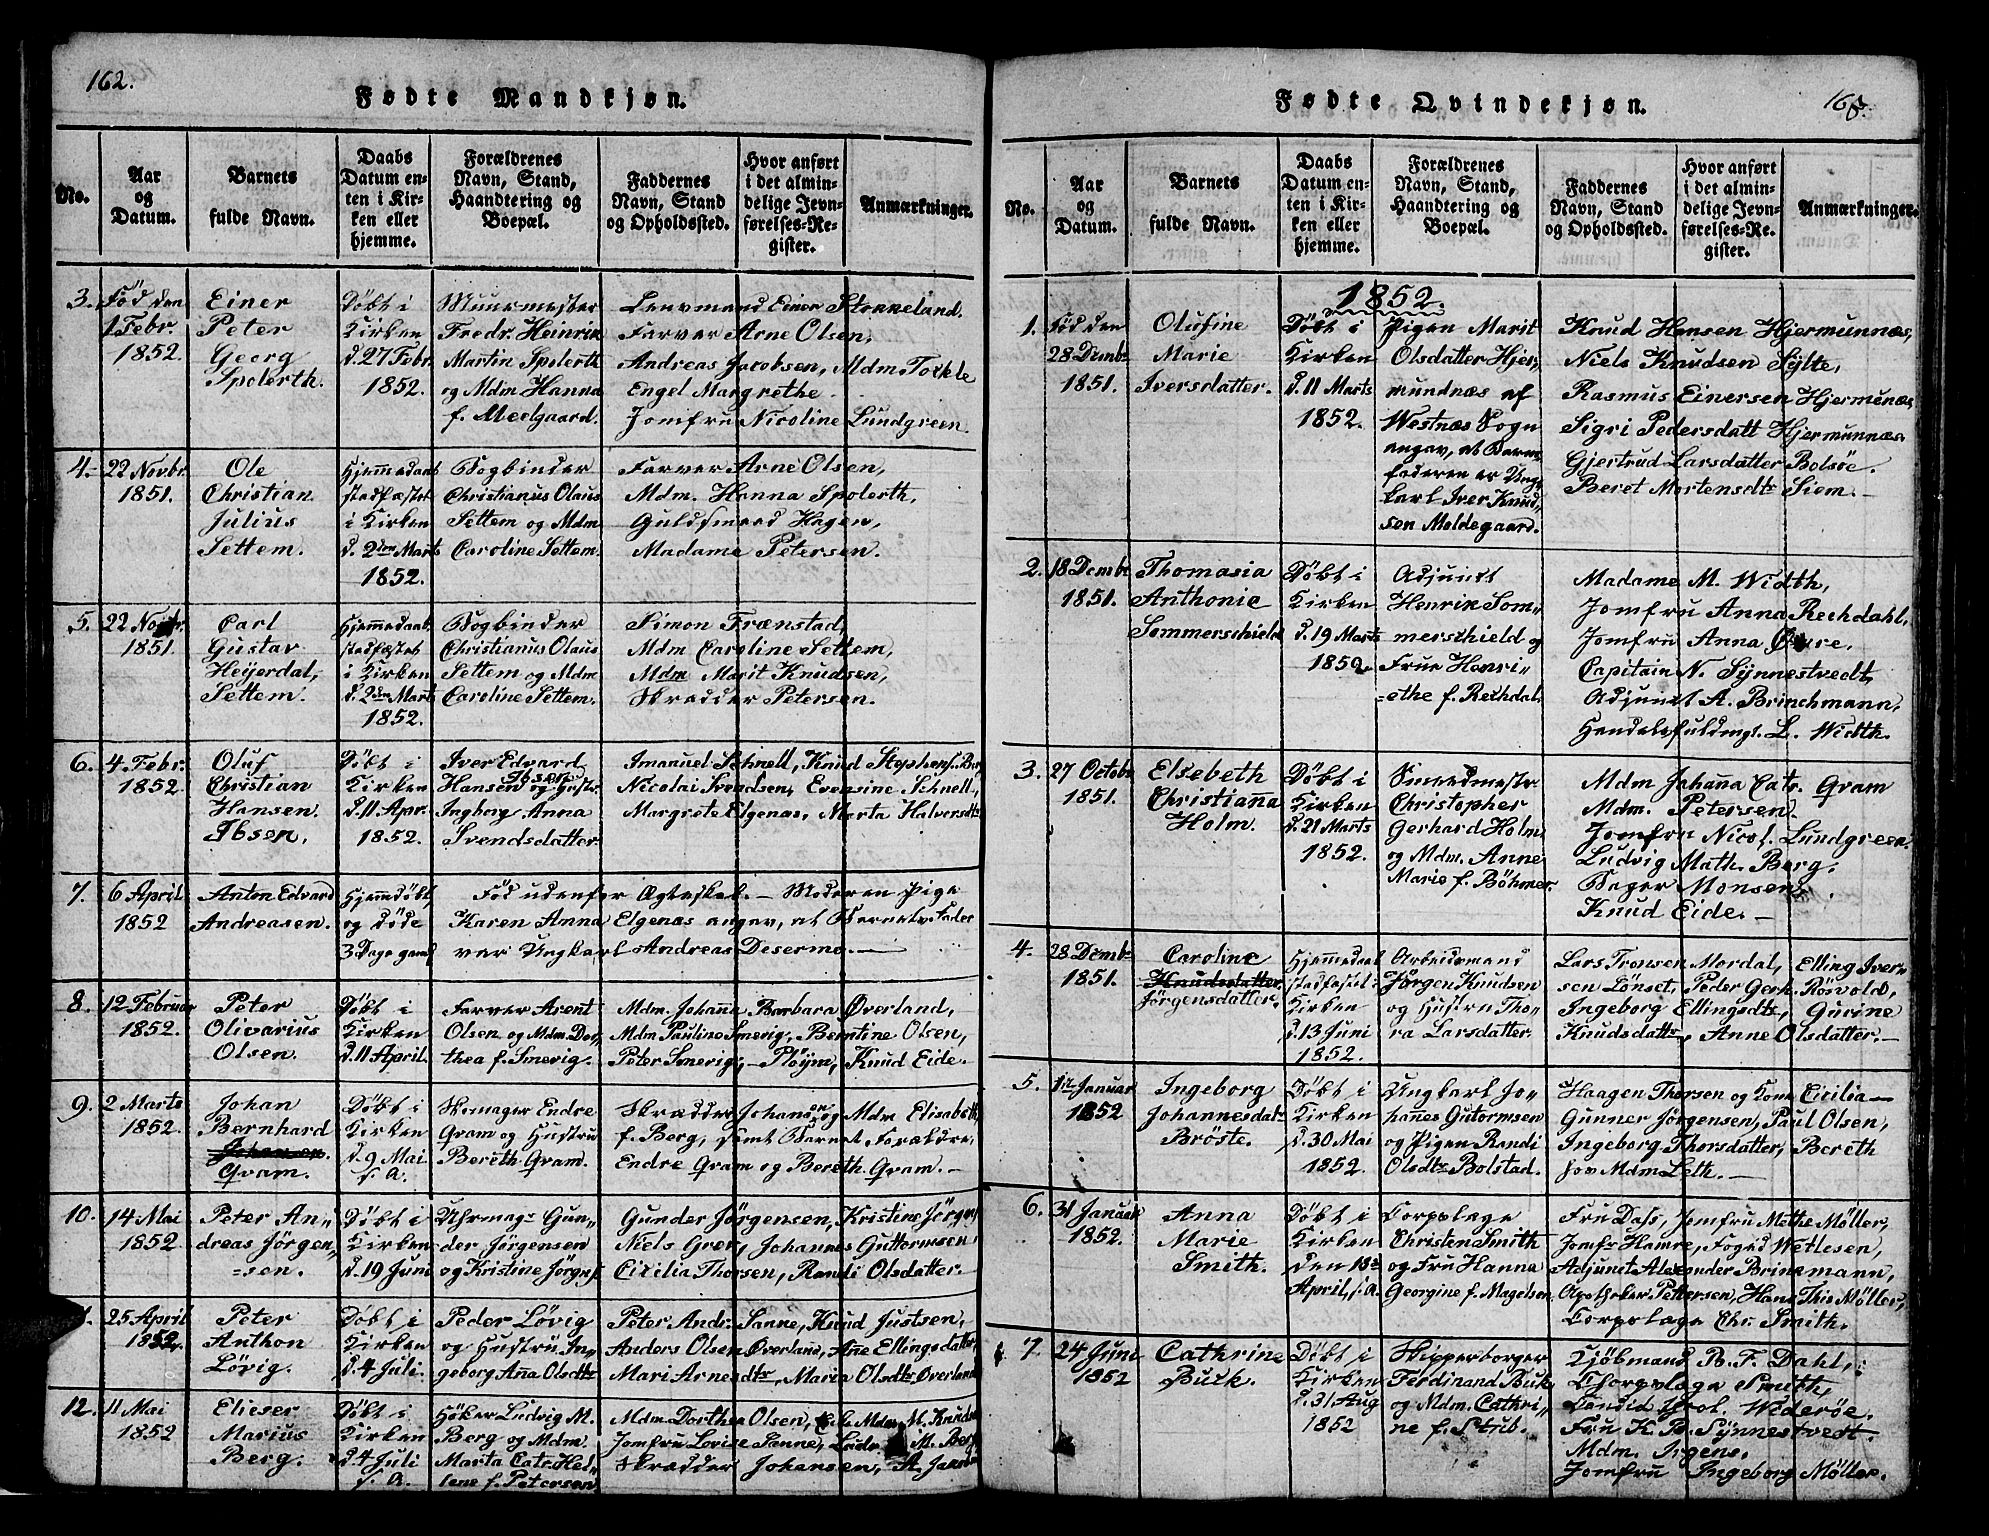 162.
Fødte Mandkjøn.
No.
Aar
og
Datum.
Barnets
fulde Navn.
Daabs
Datum en-
ten i Kir-
ken eller
hjemme.
Forældrenes
Navn, Stand,
Haandtering og
Boepæl.
Faddernes
Navn, Stand
og Opholdssted.
Hvor anført
i det almin-
delige Jevn-
førelses-Re-
gister.
Anmærkninger.
3.
Fød den
1 Febr.
1852.
Einer
Peter
Georg
Spolerth.
Døbt i
Kirken
d. 27 Febr.
1852.
Muurmester
Fredr. Heinrik
Martin Spolerth
og Mdm Hanna
f. Meelgaard.
Lensmand Einer Stokkeland,
Farver Arne Olsen,
Andreas Jacobsen, Mdm Torkle
Engel Margrethe
Jomfru Nicoline Lundgreen.
4.
22 Novbr.
1851.
Ole
Christian
Julius
Settem.
Hjemmedaab
stadfæstet
i Kirken
d. 2den Marts
1852.
Bogbinder
Christianus Olaus
Settem og Mdm
Caroline Settem.
Farver Arne Olsen,
Mdm. Hanna Spolerth,
Guldsmed Hagen,
Madame Petersen.
5.
22 Novbr.
1851.
Carl
Gustav
Heyerdal,
Settem.
Hjemmedaab
stadfæstet
i Kirken
d. 2den Marts
1852.
Bogbinder
Christianus Olaus
Settem og Mdm
Caroline Settem.
Simon Frænstad,
Mdm Caroline Settem,
Mdm Marit Knudsen,
Skrædder Petersen.
6.
4 Febr.
1852.
Oluf
Christian
Hansen
Ibsen.
Døbt i
Kirken
d. 11 Apr.
1852.
Iver Edvard
Hansen Ibsen og Hustr.
Ingborg Anna
Svendsdatter.
Imanuel Schnell, Knud Stephens.
Nicolai Svendsen, Evensine Schnell,
Margrete Elgenas, Marta Halversdtr
7.
6 April
1852
Anton Edvard
Andreasen.
Hjemdøbt
og døde
3 Dage gaml.
Fød udenfor Ægteskab. – Moderen Pige
Karen Anna Elgenas angav, at Barnets Fader
var Ungkarl Andreas Desermo. –
8.
12 Februar
1852.
Peter
Olivarius
Olsen.
Døbt i
Kirken
d. 11 April.
Farver Arent
Olsen og Mdm Dor„
thea f. Smevig.
Mdm. Johaña Barbara Øverland,
Mdm Pauline Smevig, Berntine Olsen,
Peter Smevig, – Pløyne, Knud Eide. –
9.
2 Marts
1852.
Johan
Bernhard
Johansen.
Gram.
Døbt i
Kirken
d. 9 Mai
s. A.
Skomager Endre
Gram og Hustru
Bereth Gram.
Skrædder Johansen og Mdm Elisabeth
f. Berg, samt Barnets Forældre,
Endre Gram og Bereth Gram. –
10.
14 Mai
1852
Peter An„
dreas Jörgen„
=sen.
Døbt i
Kirken
d. 19 Juni
Uhrmag. Gun„
der Jörgensen
og Kristine Jörgens.
Gunder Jörgensen, Kristine Jörgens
Niels Grer, Johannes Guttormsen
Cicilia Thorsen, Randi Olsdatter. –
25 April
1852.
Peter
Anthon
Lövig.
Døbt i
Kirken
d. 4 Juli.
Peder Lövig
og Hustru In„
geborg Aña Olsdtr
Peter Andr. Sanne, Knud Justsen,
Anders Olsen Øverland, Ane Ellingsdatter
Mari Arnesdtr, Maria Olsdtr Øverland
12.
11 Mai
1852
Elieser
Marius
Berg.
Døbt i
Kirken
d. 4 Juli
s. A.
Höker Ludvig M.
Berg og Mdm.
Marta Catr. Hel„
lene f. Petersen
Mdm Dorthea Olsen, Mdm. M. Knuds
Jomfru Lovise Sanne, M. Berg
Skrædder Johansen,
163.
Fødte Qvindekjøn.
No.
Aar
og
Datum.
Barnets
fulde Navn.
Daabs
Datum en-
ten i Kir-
ken eller
hjemme.
Forældrenes
Navn, Stand,
Haandtering og
Boepæl.
Faddernes
Navn, Stand
og Opholdssted.
Hvor anført
i det almin-
delige Jevn-
førelses-Re-
gister.
Anmærkninger.
1852.
1.
Fød den
28 Dembr
1851.
Olufine
Marie
Iversdatter.
Døbt i
Kirken
d. 11 Marts
1852.
Pigen Marit
Olsdatter Hjer„
mundnæs af
Westnæs Sogn
angav, at Barne„
faderen er Ung„
karl Iver Knud„
sen Moldegaard.
Knud Hansen Hjermunnæs,
Niels Knudsen Sylte,
Rasmus Einersen Hjermunæs,
Sigri Pedersdatt Hjermunnæs
Gjertrud Larsdatter Bolsöe.
Beret Mortensdtr Siem. –
2.
18 Dembr
1851.
Thomasia
Anthonie
Sommerschield
Døbt i
Kirken
d. 19 Marts
1852.
Adjunct
Henrik Som„
merschield og
Frue Henri„
=ethe f. Rechdal.
Madame M. Width,
Jomfru Anna Rechdahl,
Jomfru Anna Øvre.
Capitain N. Synnestvedt,
Adjunct A. Brinchmann,
Handelsfuldmgt. L. Width.
3.
27 Octobr
1851.
Elsebeth
Christiaña
Holm.
Døbt i
Kirken
d. 21 Marts
1852.
Smedmester
Christopher
Gerhard Holm,
og Mdm. Anne
Marie f. Böhmer.
Mdm Johaña Catr. Gram
Mdm. Petersen.
Jomfru Nicol. Lundgreen
Ludvig Math. Berg.
Bager Monsen
Knud Eide. –
4.
28 Dembr
1851.
Caroline
Knudsdatter.
Jörgensdatter.
Hjemmedaab
stadfæstet i
Kirken
d. 13 Juni
1852.
Arbeidsmand
Jörgen Knudsen
og Hustru Tho„
ra Larsdatter.
Lars Tronsen Mordal, Elling Iver„
sen Lönset, Peder Gerh. Rösvold,
Ingeborg Ellingsdtr, Gurine
Knudsdattr, Anne Olsdatter. –
5.
12 Januar
1852
Ingeborg
Johannesdatr
Bröste.
Døbt i
Kirken
d. 30 Mai
1852.
Ungkarl Jo„
hañes Gutormsen
og Pigen Randi
Olsdtr Bolstad.
Haagen Thorsen og Kone Cicilia –
Gunner Jörgensen, Paul Olsen,
Ingeborg Thorsdatter, Bereth
hos Mdm Leth. –
6.
31 Januar
1852.
Anna
Marie
Smith.
Døbt i
Kirken
den 18de
April, s. A.
Corpslæge
Christen Smith
og Fru Hanna
Georgine f. Magelsen.
Fru Dass, Jomfru Mathe Møller,
Jomfr Hamre, Foged Wetlesen,
Adjunct Alexander Brinkmann,
Apotheker Pettersen, Hans This Møller,
Corpslæge Chr. Smith.
7.
24 Juni
1852
Cathrine
Buck.
Døbt i
Kirken
d. 31 Aug
1852
Skipperborger
Ferdinand Buck
og Mdm. Cathri„
ne f. Strub.
Kjöbmand B. F. Dahl,
Chorpslæge Smith,
Candid. Theol. Wideröe.
Fru K. B. Synnestvedt.
Mdm. Irgens.
Jomfru Ingeborg Møller.